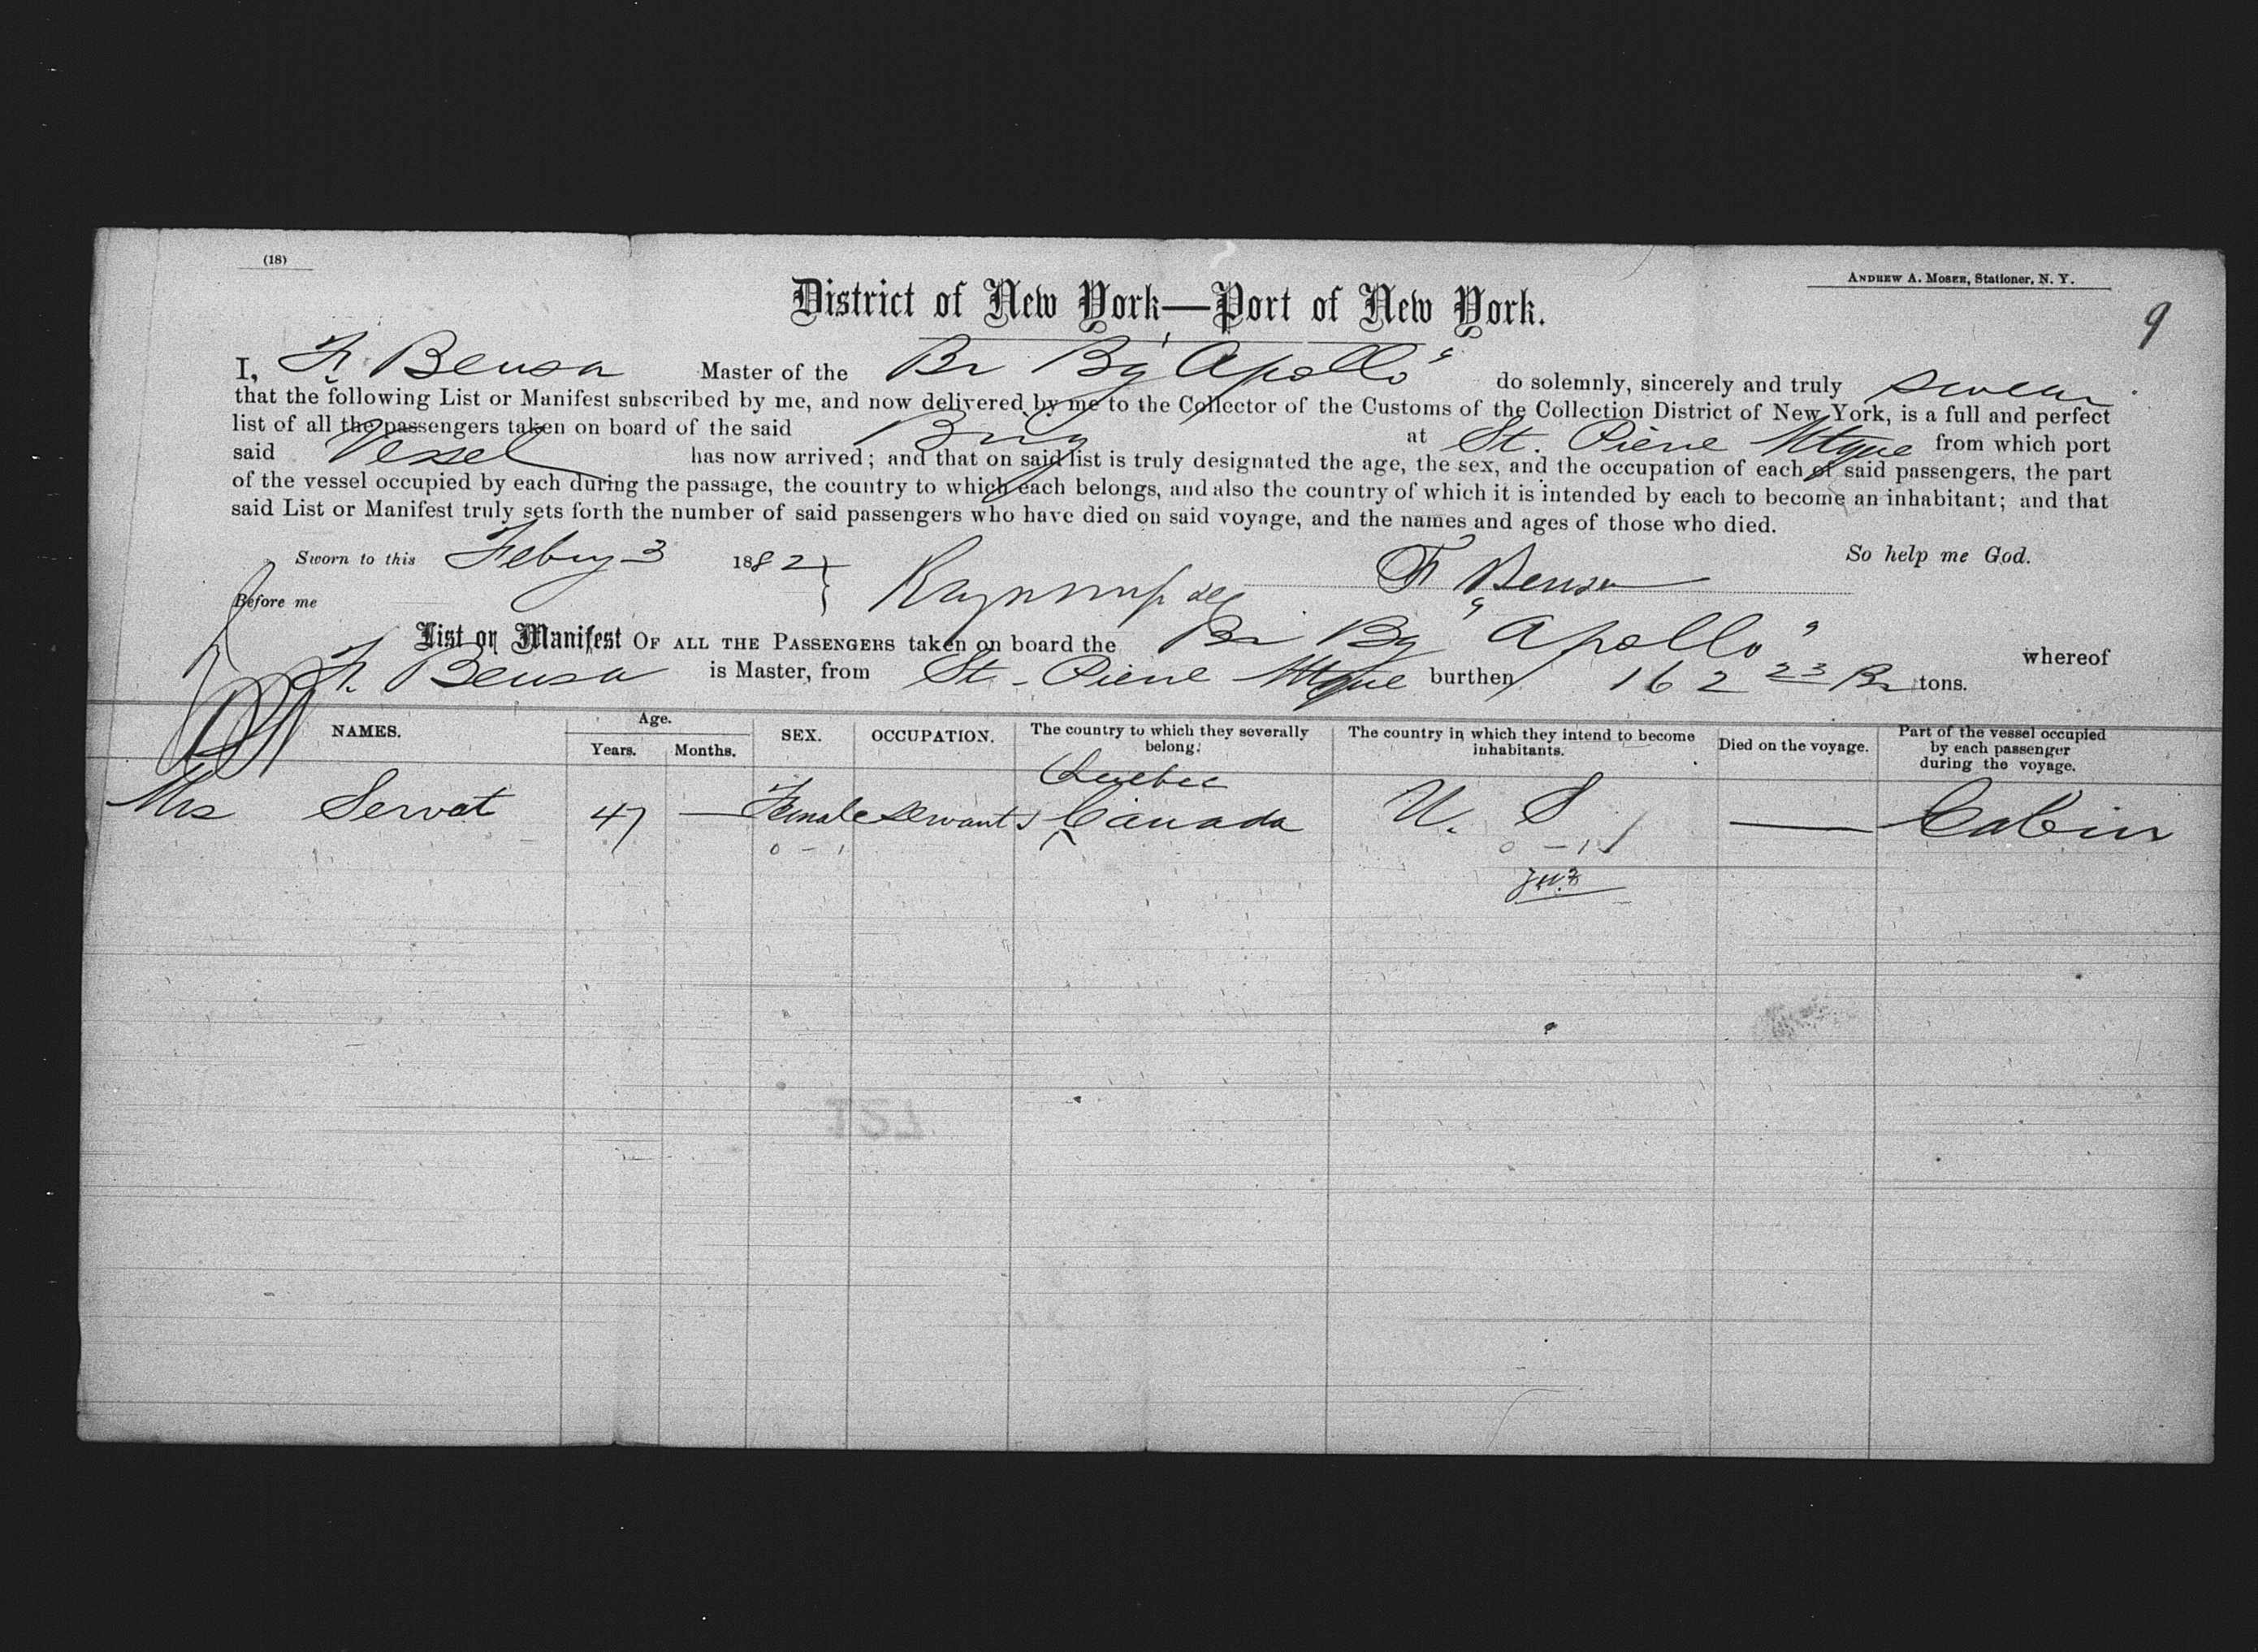 (18)
ANDREW A. MOSER, Stationer, N. Y.
9
District of New York—Port of New York.
I, F. Bensa Master of the Br Bg "Apollo" do solemnly, sincerely and truly swear
that the following List or Manifest subscribed by me, and now delivered by me to the Collector of the Customs of the Collection District of New York, is a full and perfect
list of all the passengers taken on board of the said Brig at St. Piere Mtque from which port
said Vessel has now arrived; and that on said list is truly designated the age, the sex, and the occupation of each of said passengers, the part
of the vessel occupied by each during the passage, the country to which each belongs, and also the country of which it is intended by each to become an inhabitant; and that
said List or Manifest truly sets forth the number of said passengers who have died on said voyage, and the names and ages of those who died.
So help me God.
Sworn to this Feby 3 1882 F Bensa
Before me
List or Manifest OF ALL THE PASSENGERS taken on board the Br Bg "Apollo" whereof
F. Bensa is Master, from St. Piere Mtque burthen 162 23 Br tons.
NAMES. Age. Years. Months. SEX. OCCUPATION. The country to which they severally belong. The country in which they intend to become inhabitants. Died on the voyage. Part of the vessel occupied by each passenger during the voyage.
Quebec
Mrs Servat 47 — Female Servant Canada U. S — Cabin
0 – 1 0 – 1